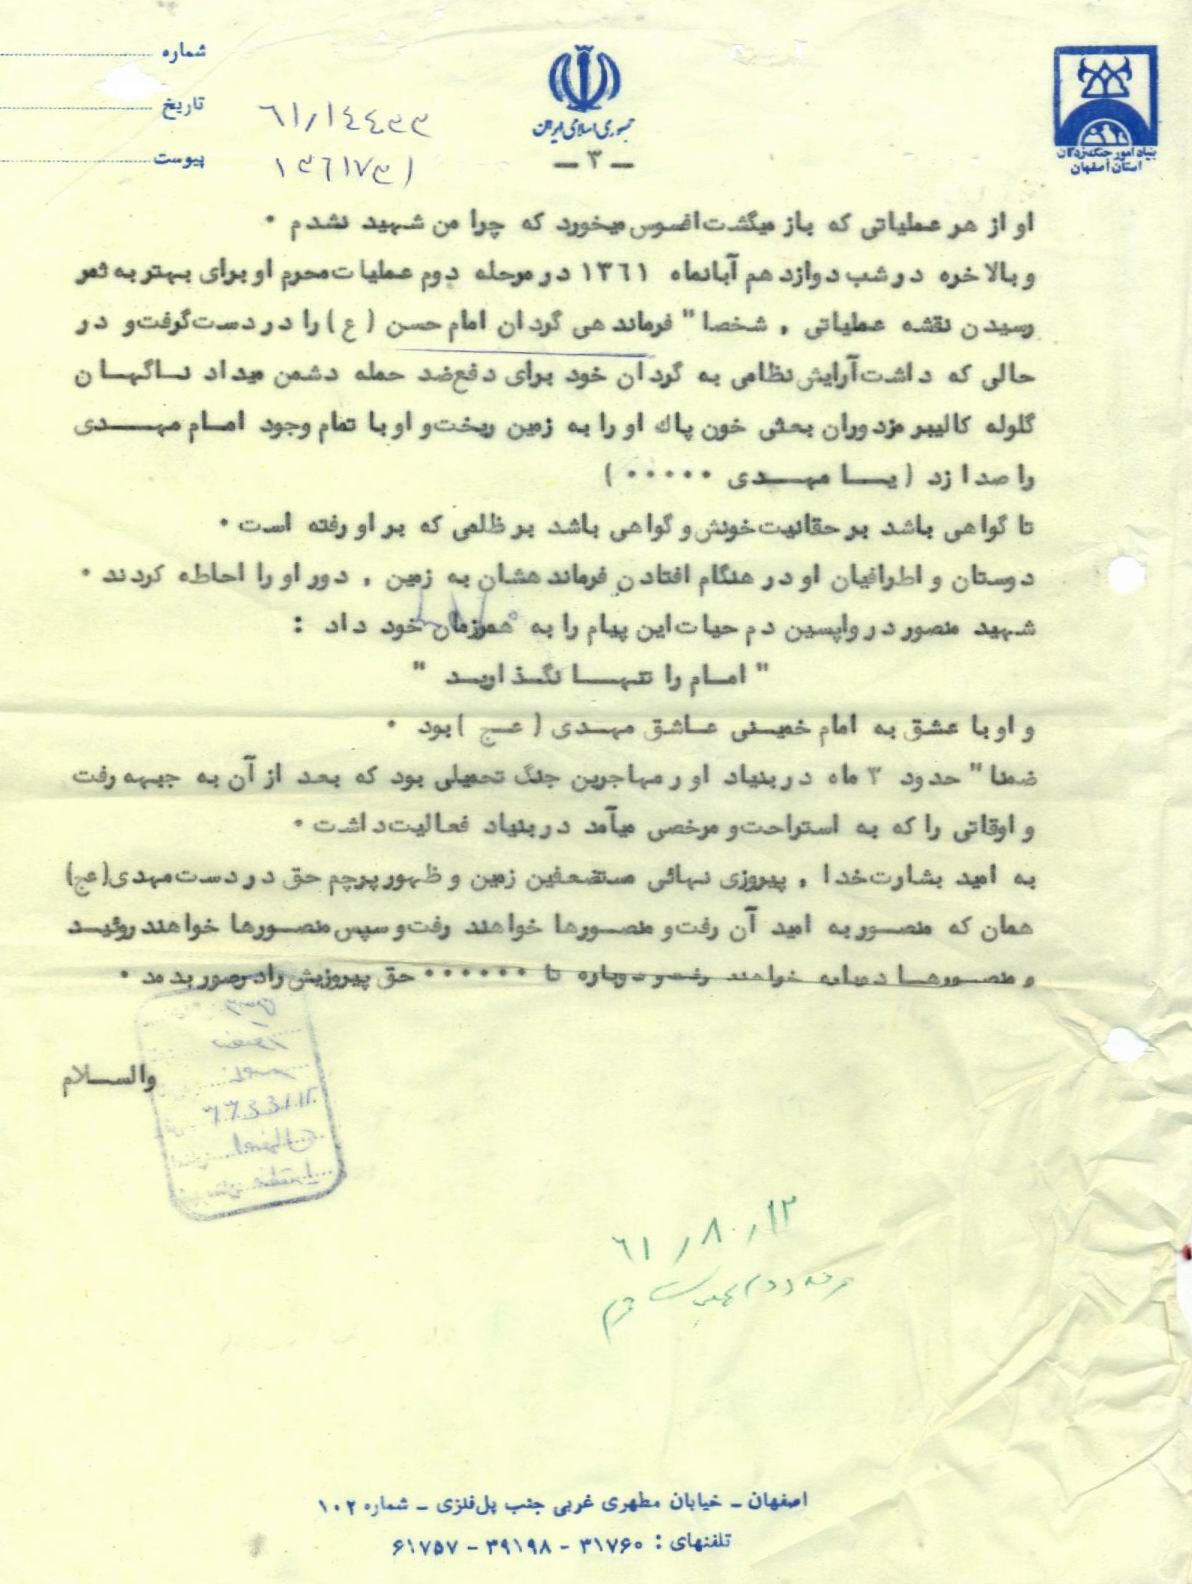 شماره
تاریخ
پیوست
۶۱/۱۴۴۳۳
۱۳۶۱۷۳۱
جمهوری اسلامی ایران
ـ ۳ ـ
بنیاد امور جنگ‌زدگان
استان اصفهان
او از هر عملیاتی که باز میگشت افسوس میخورد که چرا من شهید نشدم .
و بالاخره در شب دوازدهم آبانماه ۱۳۶۱ در مرحله دوم عملیات محرم او برای بهتر به ثمر
رسیدن نقشه عملیاتی , شخصا" فرماندهی گردان امام حسن (ع) را در دست گرفت و در
حالی که داشت آرایش نظامی به گردان خود برای دفع ضد حمله دشمن میداد ناگهان
گلوله کالیبر مزدوران بعثی خون پاك او را به زمین ریخت و او با تمام وجود امام مهدی
را صدا زد (یا مهدی .....)
تا گواهی باشد بر حقانیت خونش و گواهی باشد بر ظلمی که بر او رفته است .
دوستان و اطرافیان او در هنگام افتادن فرماندهشان به زمین , دور او را احاطه کردند .
شهید منصور در واپسین دم حیات این پیام را به همرزمان خود داد :
" امام را تنها نگذارید "
و او با عشق به امام خمینی عاشق مهدی (عج) بود .
ضمنا" حدود ۳ ماه در بنیاد اور مهاجرین جنگ تحمیلی بود که بعد از آن به جبهه رفت
و اوقاتی را که به استراحت و مرخصی میآمد در بنیاد فعالیت داشت .
به امید بشارت خدا , پیروزی نهائی مستضعفین زمین و ظهور پرچم حق در دست مهدی (عج)
همان که منصور به امید آن رفت و منصورها خواهند رفت و سپس منصورها خواهند روئید
و منصورها دوباره خواهند رفت و دوباره تا ...... حق پیروزیش را در صور بدمد .
والسلام
۶۱/۸۰/۱۲
مرحله دوم عملیات محرم
اصفهان ـ خیابان مطهری غربی جنب پل فلزی ـ شماره ۱۰۲
تلفنهای : ۳۱۷۶۰ - ۳۹۱۹۸ - ۶۱۷۵۷